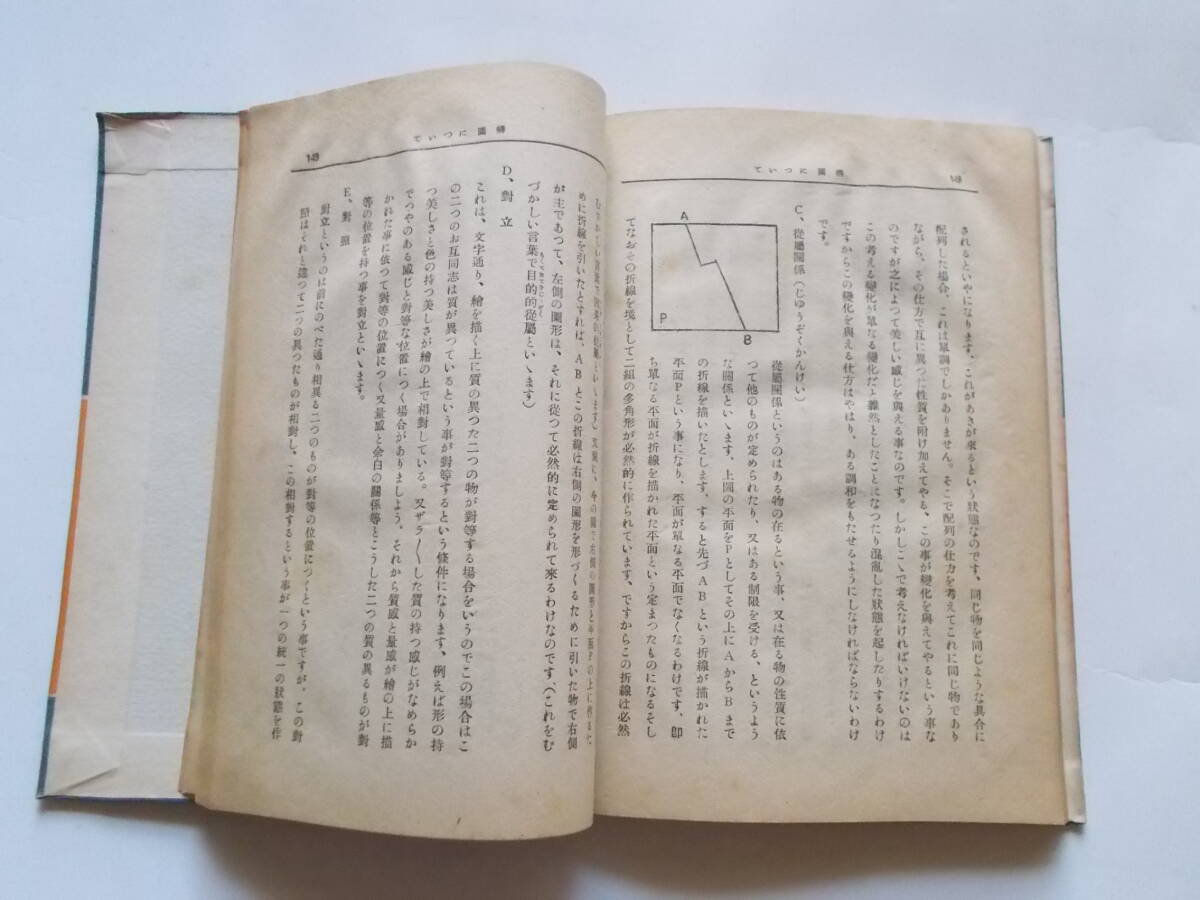 構圖について
149
されるといやになります、これがあきが來るという狀態なのです、同じ物を同じような具合に
配列した場合、これは單調でしかありません。そこで配列の仕方を考えてこれに同じ物であり
ながら、その仕方で互に異つた性質を附け加えてやる、この事が變化を與えてやるという事な
のですが之によつて美しい感じを與える事なのです。しかしこゝで考えなければいけないのは
この考える變化が單なる變化だと雜然としたことになつたり混亂した狀態を起したりするわけ
ですからこの變化を與える仕方はやはり、ある調和をもたせるようにしなければならないわけ
です。
C、從屬關係(じゆうぞくかんけい)
A
P
B
從屬關係というのはある物の在るという事、又は在る物の性質に依
つて他のものが定められたり、又はある制限を受ける、というよう
な關係といゝます、上圖の平面をPとしてその上にAからBまで
の折線を描いたとします、すると先づABという折線が描かれた
平面Pという事になり、平面が單なる平面でなくなるわけです、卽
ち單なる平面が折線を描かれた平面という定まつたものになるそし
てなおその折線を境として二組の多角形が必然的に作られています、ですからこの折線は必然
構圖について
149
めに折線を引いたとすれば、ABとこの折線は右側の圖形を形づくるために引いた物で右側
が主であつて、左側の圖形は、それに從つて必然的に定められて來るわけなのです、(これをむ
づかしい言葉で目的的從屬といゝます)
D、對立
これは、文字通り、繪を描く上に質の異つた二つの物が對等する場合をいうのでこの場合はこ
の二つのお互同志は質が異つているという事が對等するという條件になります、例えば形の持
つ美しさと色の持つ美しさが繪の上で相對している。又ザラ〳〵した質の持つ感じがなめらか
でつやのある感じと對等な位置につく場合がありましよう、それから質感と量感が繪の上に描
かれた事に依つて對等の位置につく又量感と余白の關係等とこうした二つの質の異るものが對
等の位置を持つ事を對立といゝます。
E、對照
對立というのは前にのべた通り相異る二つのものが對等の位置につくという事ですが、この對
照はそれと違つて二つの異つたものが相對し、この相對するという事が一つの統一の狀態を作